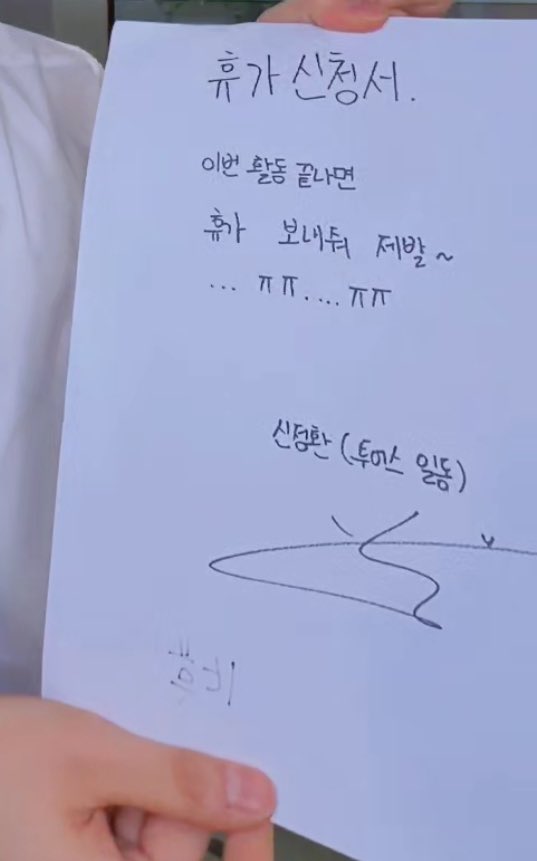 휴가 신청서.
이번 활동 끝나면
휴가 보내줘 제발~
... ㅠㅠ....ㅠㅠ
신정환 (투어스 일동)